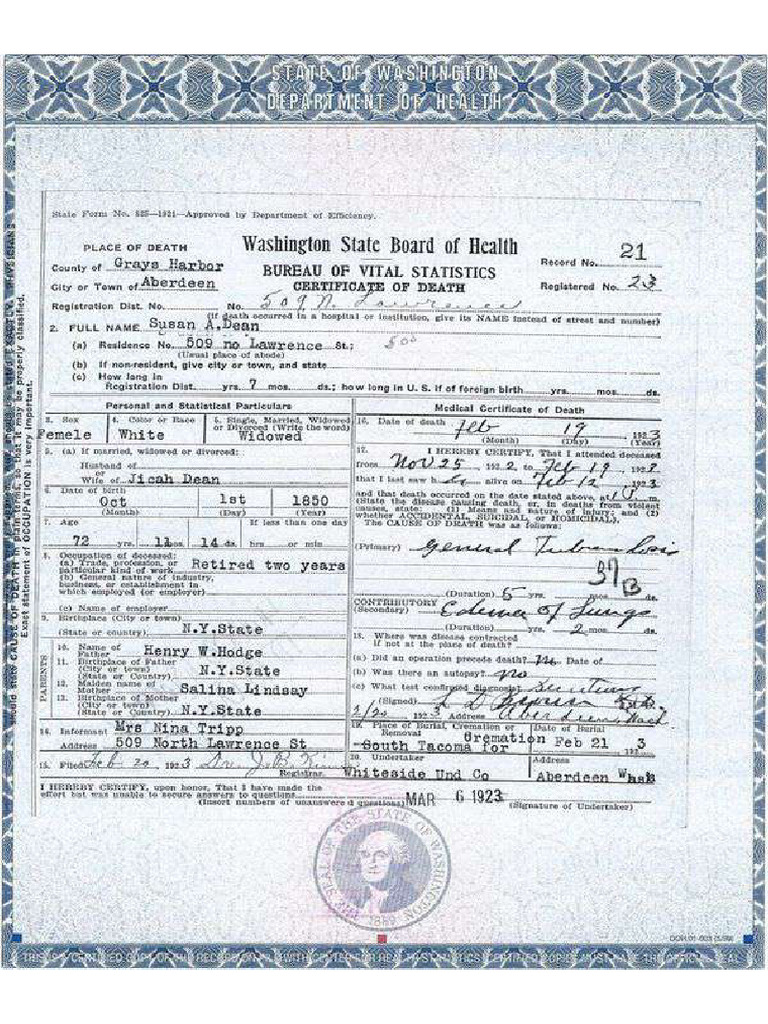 STATE OF WASHINGTON
DEPARTMENT OF HEALTH
State Form No. 1921—Approved by Department of Efficiency.
PLACE OF DEATH
Washington State Board of Health
Record No. 21
County of Grays Harbor
BUREAU OF VITAL STATISTICS
City or Town of Aberdeen
CERTIFICATE OF DEATH
Registered No. 23
Registration Dist. No. No. 509 N. Lawrence
(If death occurred in a hospital or institution, give its NAME instead of street and number)
2. FULL NAME Susan A.Dean
(a) Residence No. 509 no Lawrence St;
(Usual place of abode)
(b) If non-resident, give city or town, and state
(c) How long in
Registration Dist. yrs. 7 mos. ds.; how long in U. S. if of foreign birth yrs. mos. ds.
Personal and Statistical Particulars
3. Sex
Femele
4. Color or Race
White
5. Single, Married, Widowed
or Divorced (Write the word)
Widowed
5. (a) If married, widowed or divorced:
Husband of
or
Wife of Jicah Dean
6. Date of birth
Oct 1st 1850
(Month) (Day) (Year)
7. Age If less than one day
72 yrs. 11 mos 14 ds. hrs or min
8. Occupation of deceased:
(a) Trade, profession, or
particular kind of work Retired two years
(b) General nature of industry,
business, or establishment in
which employed (or employer)
(c) Name of employer
9. Birthplace (City or town)
(State or country) N.Y.State
PARENTS
10. Name of
Father Henry W.Hodge
11. Birthplace of Father
(City or town)
(State or Country) N.Y.State
12. Maiden name of
Mother Salina Lindsay
13. Birthplace of Mother
(City or town)
(State or Country) N.Y.State
14. Informant Mrs Nina Tripp
Address 509 North Lawrence St
15. Filed Feb 20 1923 Dr. J. B.
Registrar.
Medical Certificate of Death
16. Date of death Feb 19 1923
(Month) (Day) (Year)
17. I HEREBY CERTIFY, That I attended deceased
from Nov 25, 1922 to Feb 19, 192
that I last saw h alive on Feb 12, 1923
and that death occurred on the date stated above, at m.
(State the disease causing death, or, in deaths from violent
causes, state: (1) Means and nature of injury; and (2)
whether ACCIDENTAL, SUICIDAL, or HOMICIDAL).
The CAUSE OF DEATH was as follows:
(Primary) General Tuberculosis
(Duration) 5 yrs. mos. ds.
CONTRIBUTORY
(Secondary) Edema of Lungs
(Duration) yrs. 2 mos. ds.
18. Where was disease contracted
if not at the place of death?
(a) Did an operation precede death? No Date of
(b) Was there an autopsy? no
(c) What test confirmed diagnosis?
(Signed)
2/20 192 Address Aberdeen Wash
19. Place of Burial, Cremation or
Removal
South Tacoma for Cremation
Date of Burial
Feb 21 192 3
20. Undertaker
Whiteside Und Co
Address
Aberdeen Wash
I HEREBY CERTIFY, upon honor, That I have made the
effort but was unable to secure answers to questions
(Insert numbers of unanswered questions)
MAR 6 1923
(Signature of Undertaker)
should state CAUSE OF DEATH in so that it may be properly classified.
Exact statement of OCCUPATION is very important.
THE SEAL OF THE STATE OF WASHINGTON
1889